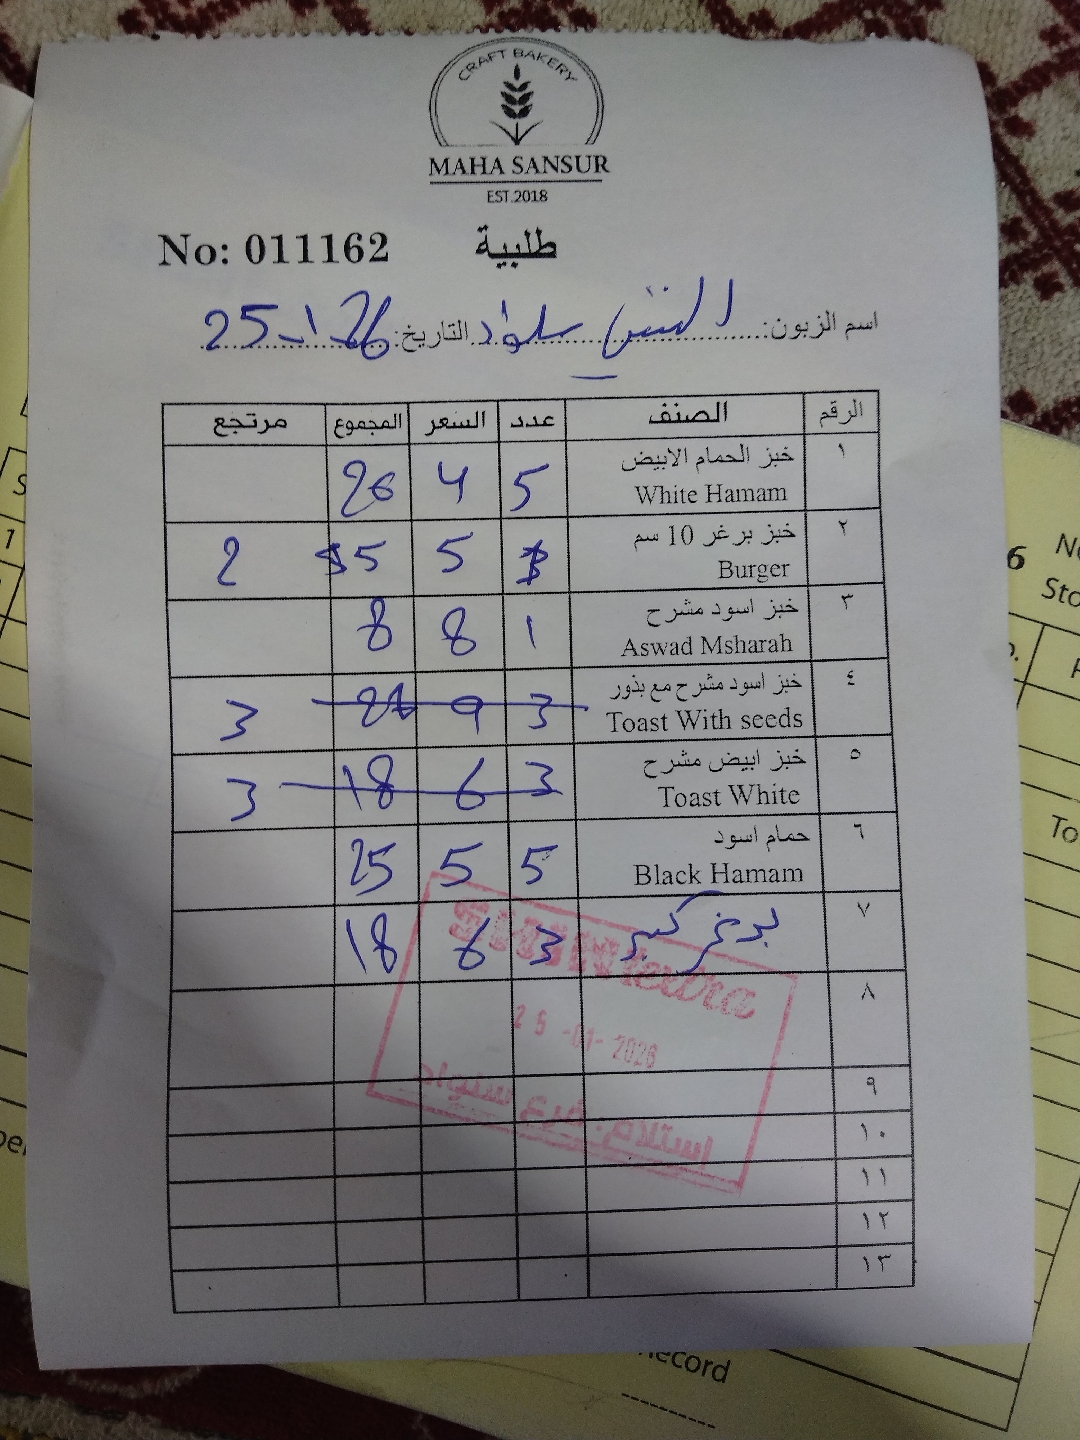 CRAFT BAKERY
MAHA SANSUR
EST.2018
No: 011162 طلبية
اسم الزبون: سلواد التاريخ: 25-1-26
الرقم الصنف عدد السعر المجموع مرتجع
١ خبز الحمام الابيض 5 4 20
White Hamam
٢ خبز برغر 10 سم 5 2
Burger
٣ خبز اسود مشرح 1 8 8
Aswad Msharah
٤ خبز اسود مشرح مع بذور 3 9 3
Toast With seeds
٥ خبز ابيض مشرح 3 6 18 3
Toast White
٦ حمام اسود 5 5 25
Black Hamam
٧ برغر كبير 3 6 18
٨
٩
١٠
١١
١٢
١٣
-01- 2026
استلام: فرع سلواد
6
1
To
Record